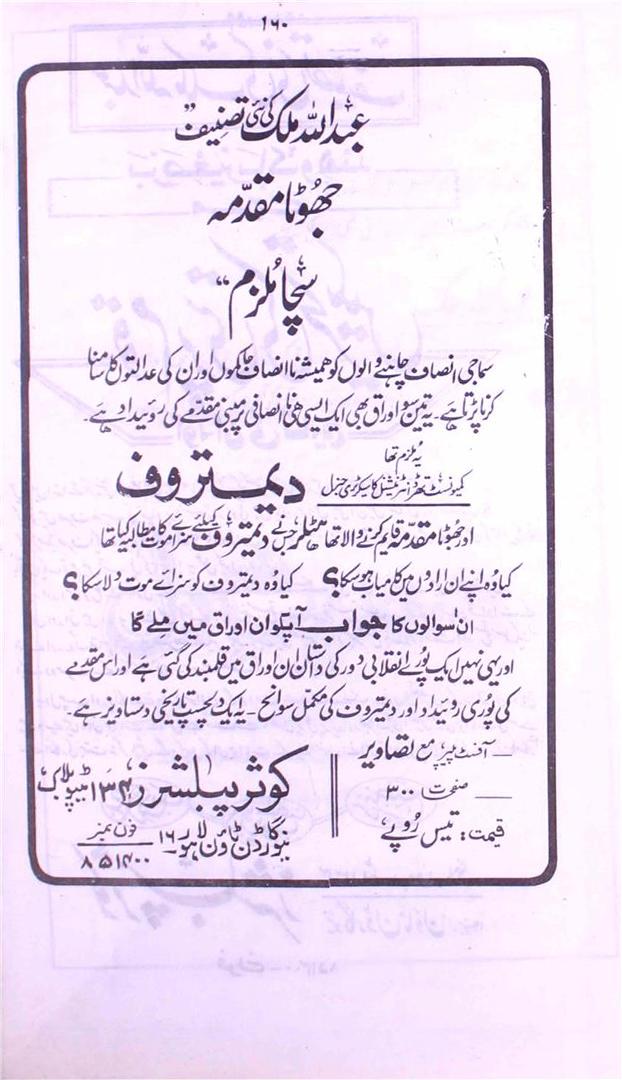 ۱۶۰
عبداللہ ملک کی نئی تصنیف "
جھوٹا مقدّمہ
سچّا ملزم "
سماجی انصاف چاہنے والوں کو ہمیشہ نا انصاف حاکموں اور ان کی عدالتوں کا سامنا
کرنا پڑتا ہے۔ یہ تین سو اوراق بھی ایک ایسی ہی نا انصافی پر مبنی مقدمے کی روئیداد ہے۔
یہ ملزم تھا
کمیونسٹ تھرڈ انٹرنیشنل کا سیکرٹری جنرل دیمتروف
اور جھوٹا مقدمہ قایم کرنے والا تھا ہٹلر جس نے دیمتروف کیلئے سزائے موت کا مطالبہ کیا تھا
کیا وہ اپنے ان ارادوں میں کامیاب ہو سکا؟ کیا وہ دیمتروف کو سزائے موت دلا سکا؟
ان سوالوں کا جواب آپکو ان اوراق میں ملے گا
اور یہی نہیں ایک پورے انقلابی دور کی داستان ان اوراق میں قلمبند کی گئی ہے اور اس مقدمے
کی پوری روئیداد اور دیمتروف کی مکمل سوانح ۔ یہ ایک دلچسپ تاریخی دستاویز ہے۔
— آفسٹ پیپر مع تصاویر
— صفحات ۳۰۰
قیمت: تیس روپے
کوثر پبلشرز ۱۳۴، ٹیپو بلاک
نیو گارڈن ٹاؤن لاہور ۱۶ فون نمبر
۸۵۱۴۰۰